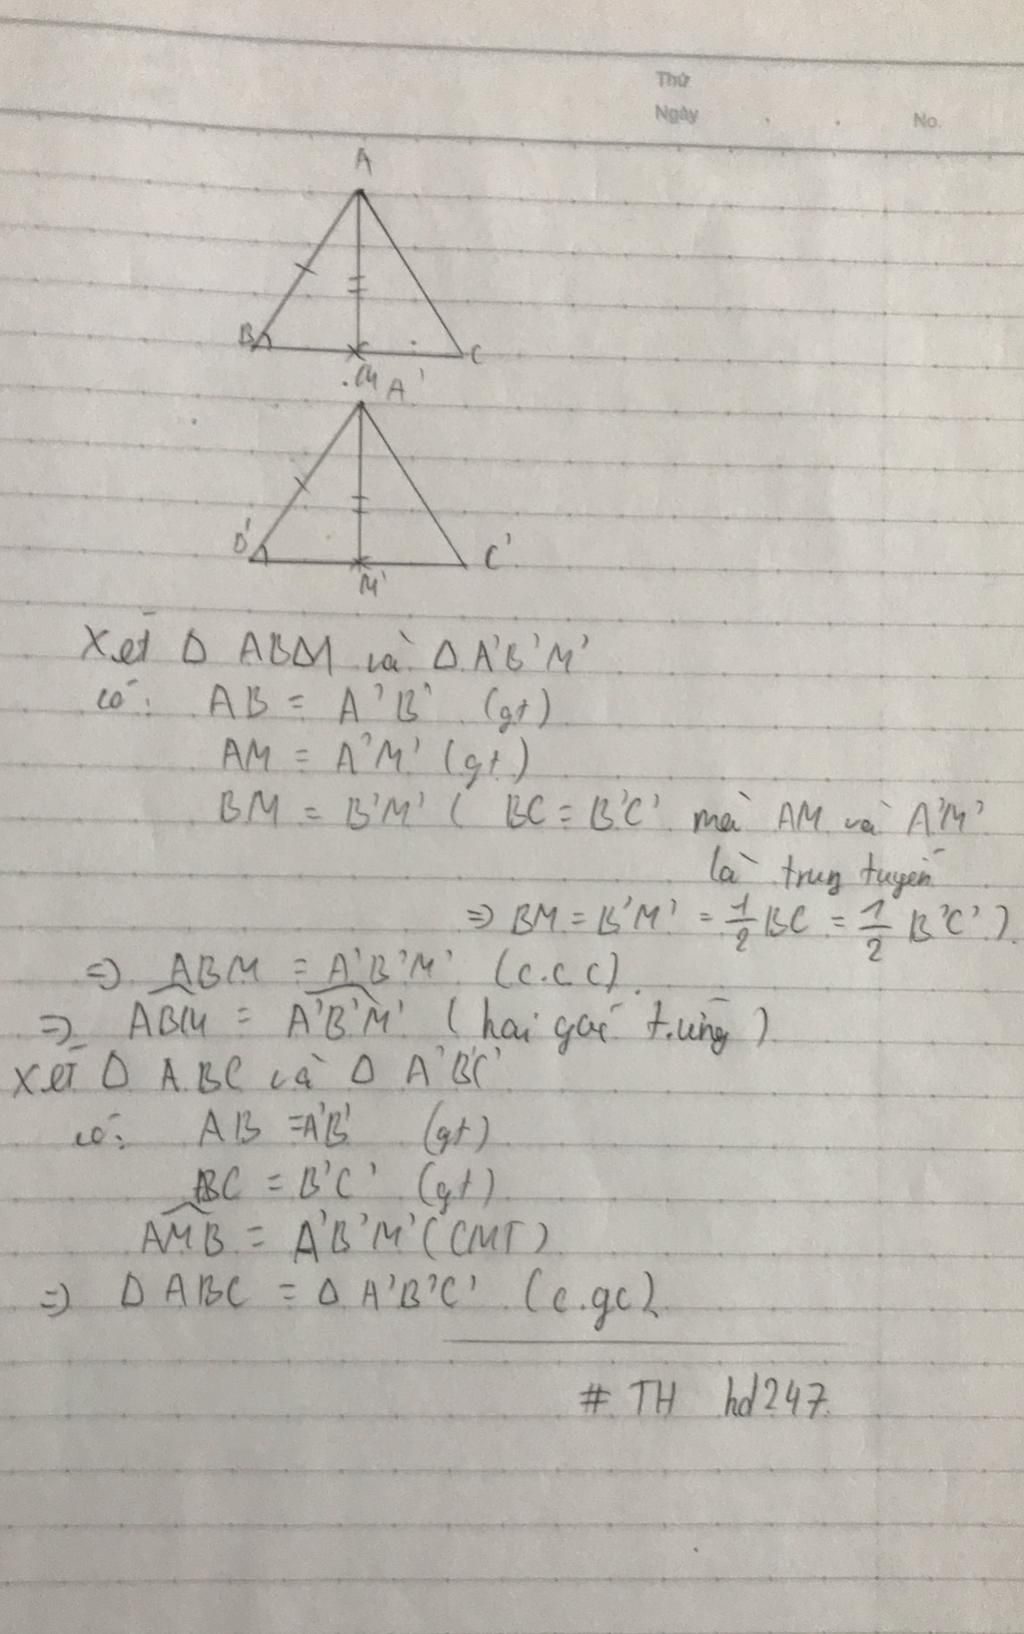 Thứ
Ngày . . No.
A
B C
M A'
B' C'
M'
Xét Δ ABM và Δ A'B'M'
có: AB = A'B' (gt)
AM = A'M' (gt)
BM = B'M' ( BC = B'C' mà AM và A'M'
là trung tuyến
=> BM = B'M' = 1/2 BC = 1/2 B'C' ).
=> ABM = A'B'M' (c.c.c).
=> ABM = A'B'M' ( hai góc t.ứng ).
Xét Δ ABC và Δ A'B'C'
có: AB = A'B' (gt)
BC = B'C' (gt)
AMB = A'B'M' (CMT)
=> Δ ABC = Δ A'B'C' (c.gc)
# TH hd247.